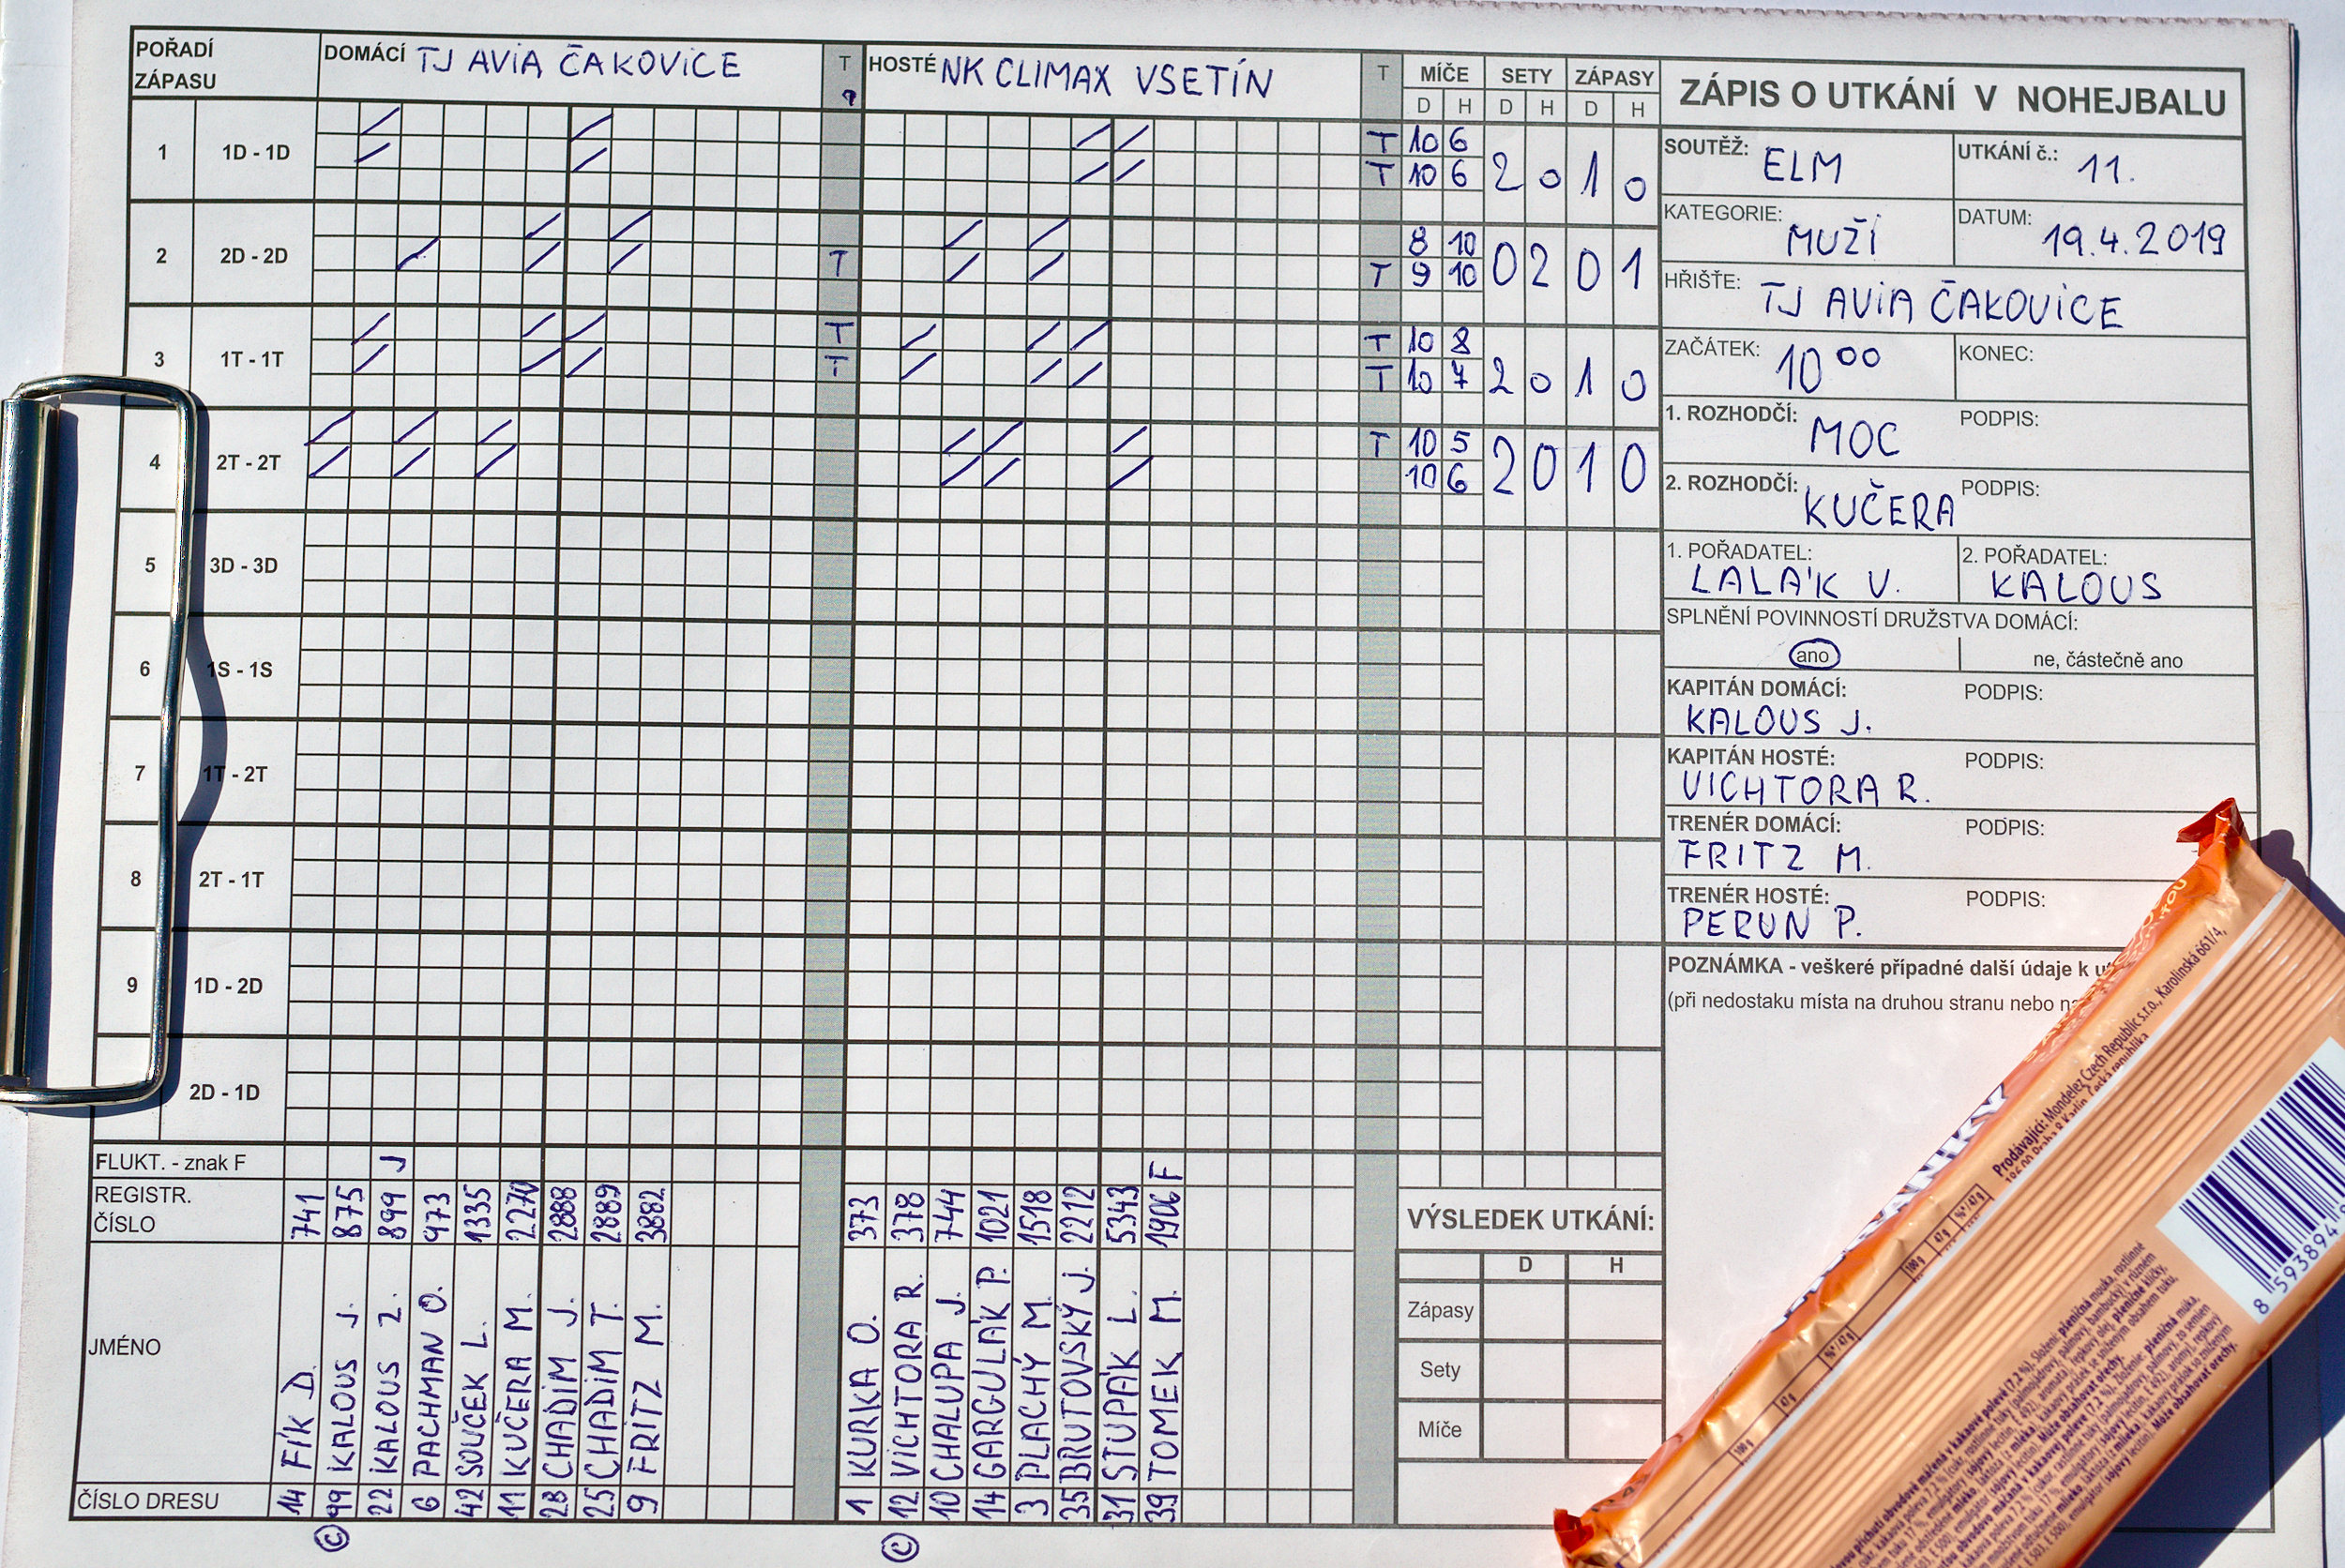 POŘADÍ ZÁPASU
DOMÁCÍ TJ AVIA ČAKOVICE
T
HOSTÉ NK CLIMAX VSETÍN
T
MÍČE SETY ZÁPASY
D H D H D H
1 1D - 1D T 10 6 2 0 1 0
T 10 6
2 2D - 2D 8 10 0 2 0 1
T T 9 10
3 1T - 1T T T 10 8 2 0 1 0
T T 10 7
4 2T - 2T T 10 5 2 0 1 0
10 6
5 3D - 3D
6 1S - 1S
7 1T - 2T
8 2T - 1T
9 1D - 2D
2D - 1D
FLUKT. - znak F J F
REGISTR. ČÍSLO 741 875 899 973 1335 2270 2888 2889 3882 373 378 744 1021 1518 2212 5343 1906
JMÉNO
FÍK D.
KALOUS J.
KALOUS Z.
PACHMAN O.
SOUČEK L.
KUČERA M.
CHADIM J.
CHADIM T.
FRITZ M.
KURKA O.
VICHTORA R.
CHALUPA J.
GARGULÁK P.
PLACHÝ M.
BRUTOVSKÝ J.
STUPÁK L.
TOMEK M.
ČÍSLO DRESU 14 99 22 6 42 11 28 25 9 1 12 10 14 3 35 31 39
C C
ZÁPIS O UTKÁNÍ V NOHEJBALU
SOUTĚŽ: ELM UTKÁNÍ č.: 11.
KATEGORIE: MUŽI DATUM: 19.4.2019
HŘIŠTĚ: TJ AVIA ČAKOVICE
ZAČÁTEK: 10 00 KONEC:
1. ROZHODČÍ: MOC PODPIS:
2. ROZHODČÍ: KUČERA PODPIS:
1. POŘADATEL: LALÁK V. 2. POŘADATEL: KALOUS
SPLNĚNÍ POVINNOSTÍ DRUŽSTVA DOMÁCÍ:
ano ne, částečně ano
KAPITÁN DOMÁCÍ: PODPIS:
KALOUS J.
KAPITÁN HOSTÉ: PODPIS:
VICHTORA R.
TRENÉR DOMÁCÍ: PODPIS:
FRITZ M.
TRENÉR HOSTÉ: PODPIS:
PERUN P.
POZNÁMKA - veškeré případné další údaje k
(při nedostaku místa na druhou stranu nebo
VÝSLEDEK UTKÁNÍ:
D H
Zápasy
Sety
Míče
Prodávající: Mondelez Czech Republic s.r.o., Karolinská 661/4,
8 593894